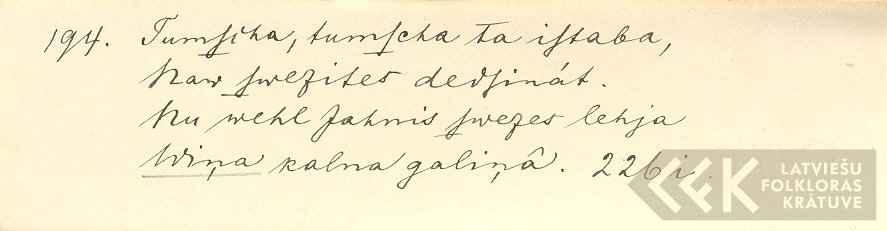 194. Tumſcha, tumſcha ta iſtaba,
Naw ſwezites dedſinát.
Nu wehl Jahnis ſwezes lehja
Wiņa kalna galiņâ. 226i
LATVIEŠU
FOLKLORAS
KRĀTUVE